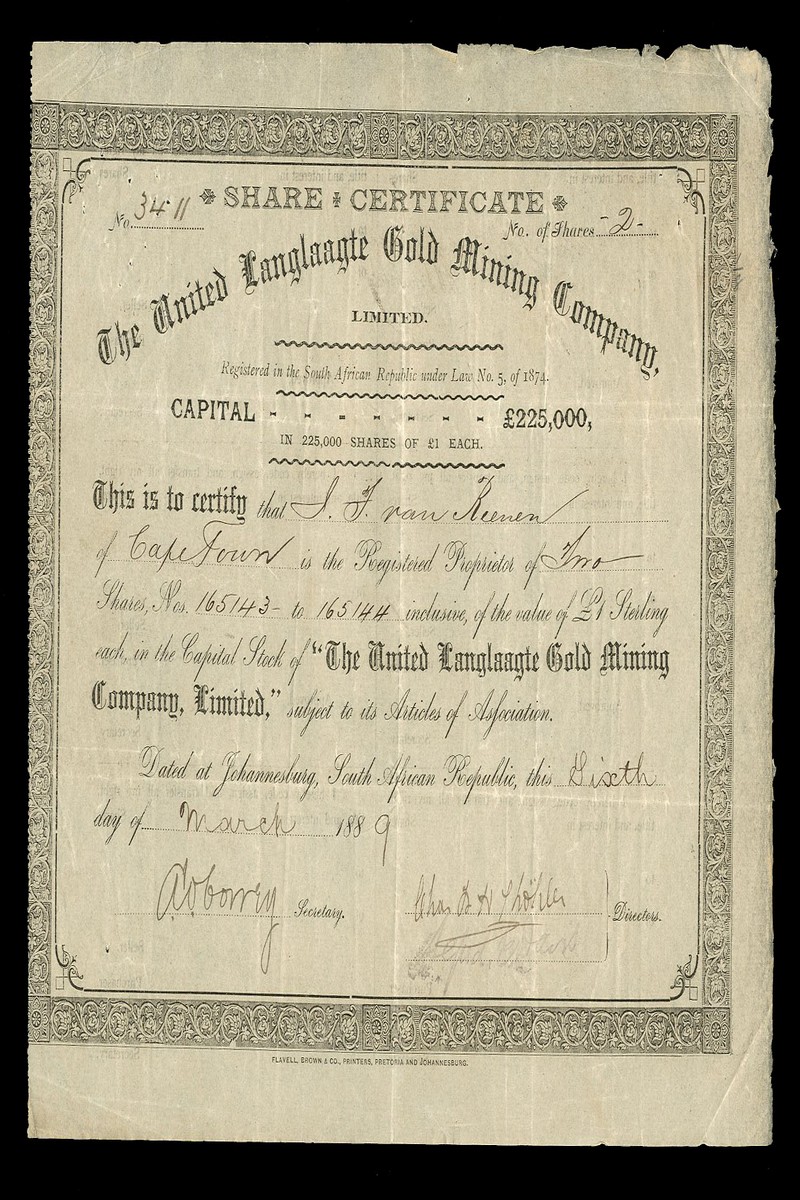 SHARE CERTIFICATE
No. 3411
No. of Shares -2-
The United Langlaagte Gold Mining Company,
LIMITED.
Registered in the South African Republic under Law No. 5, of 1874.
CAPITAL - - - - - - £225,000,
IN 225,000 SHARES OF £1 EACH.
This is to certify that J. F. van Reenen
of Cape Town is the Registered Proprietor of Two
Shares, Nos. 165143 - to 165144 inclusive, of the value of £1 Sterling
each, in the Capital Stock of "The United Langlaagte Gold Mining
Company, Limited," subject to its Articles of Association.
Dated at Johannesburg, South African Republic, this Sixth
day of March 1889
Secretary.
Directors.
FLAVELL, BROWN & CO., PRINTERS, PRETORIA AND JOHANNESBURG.